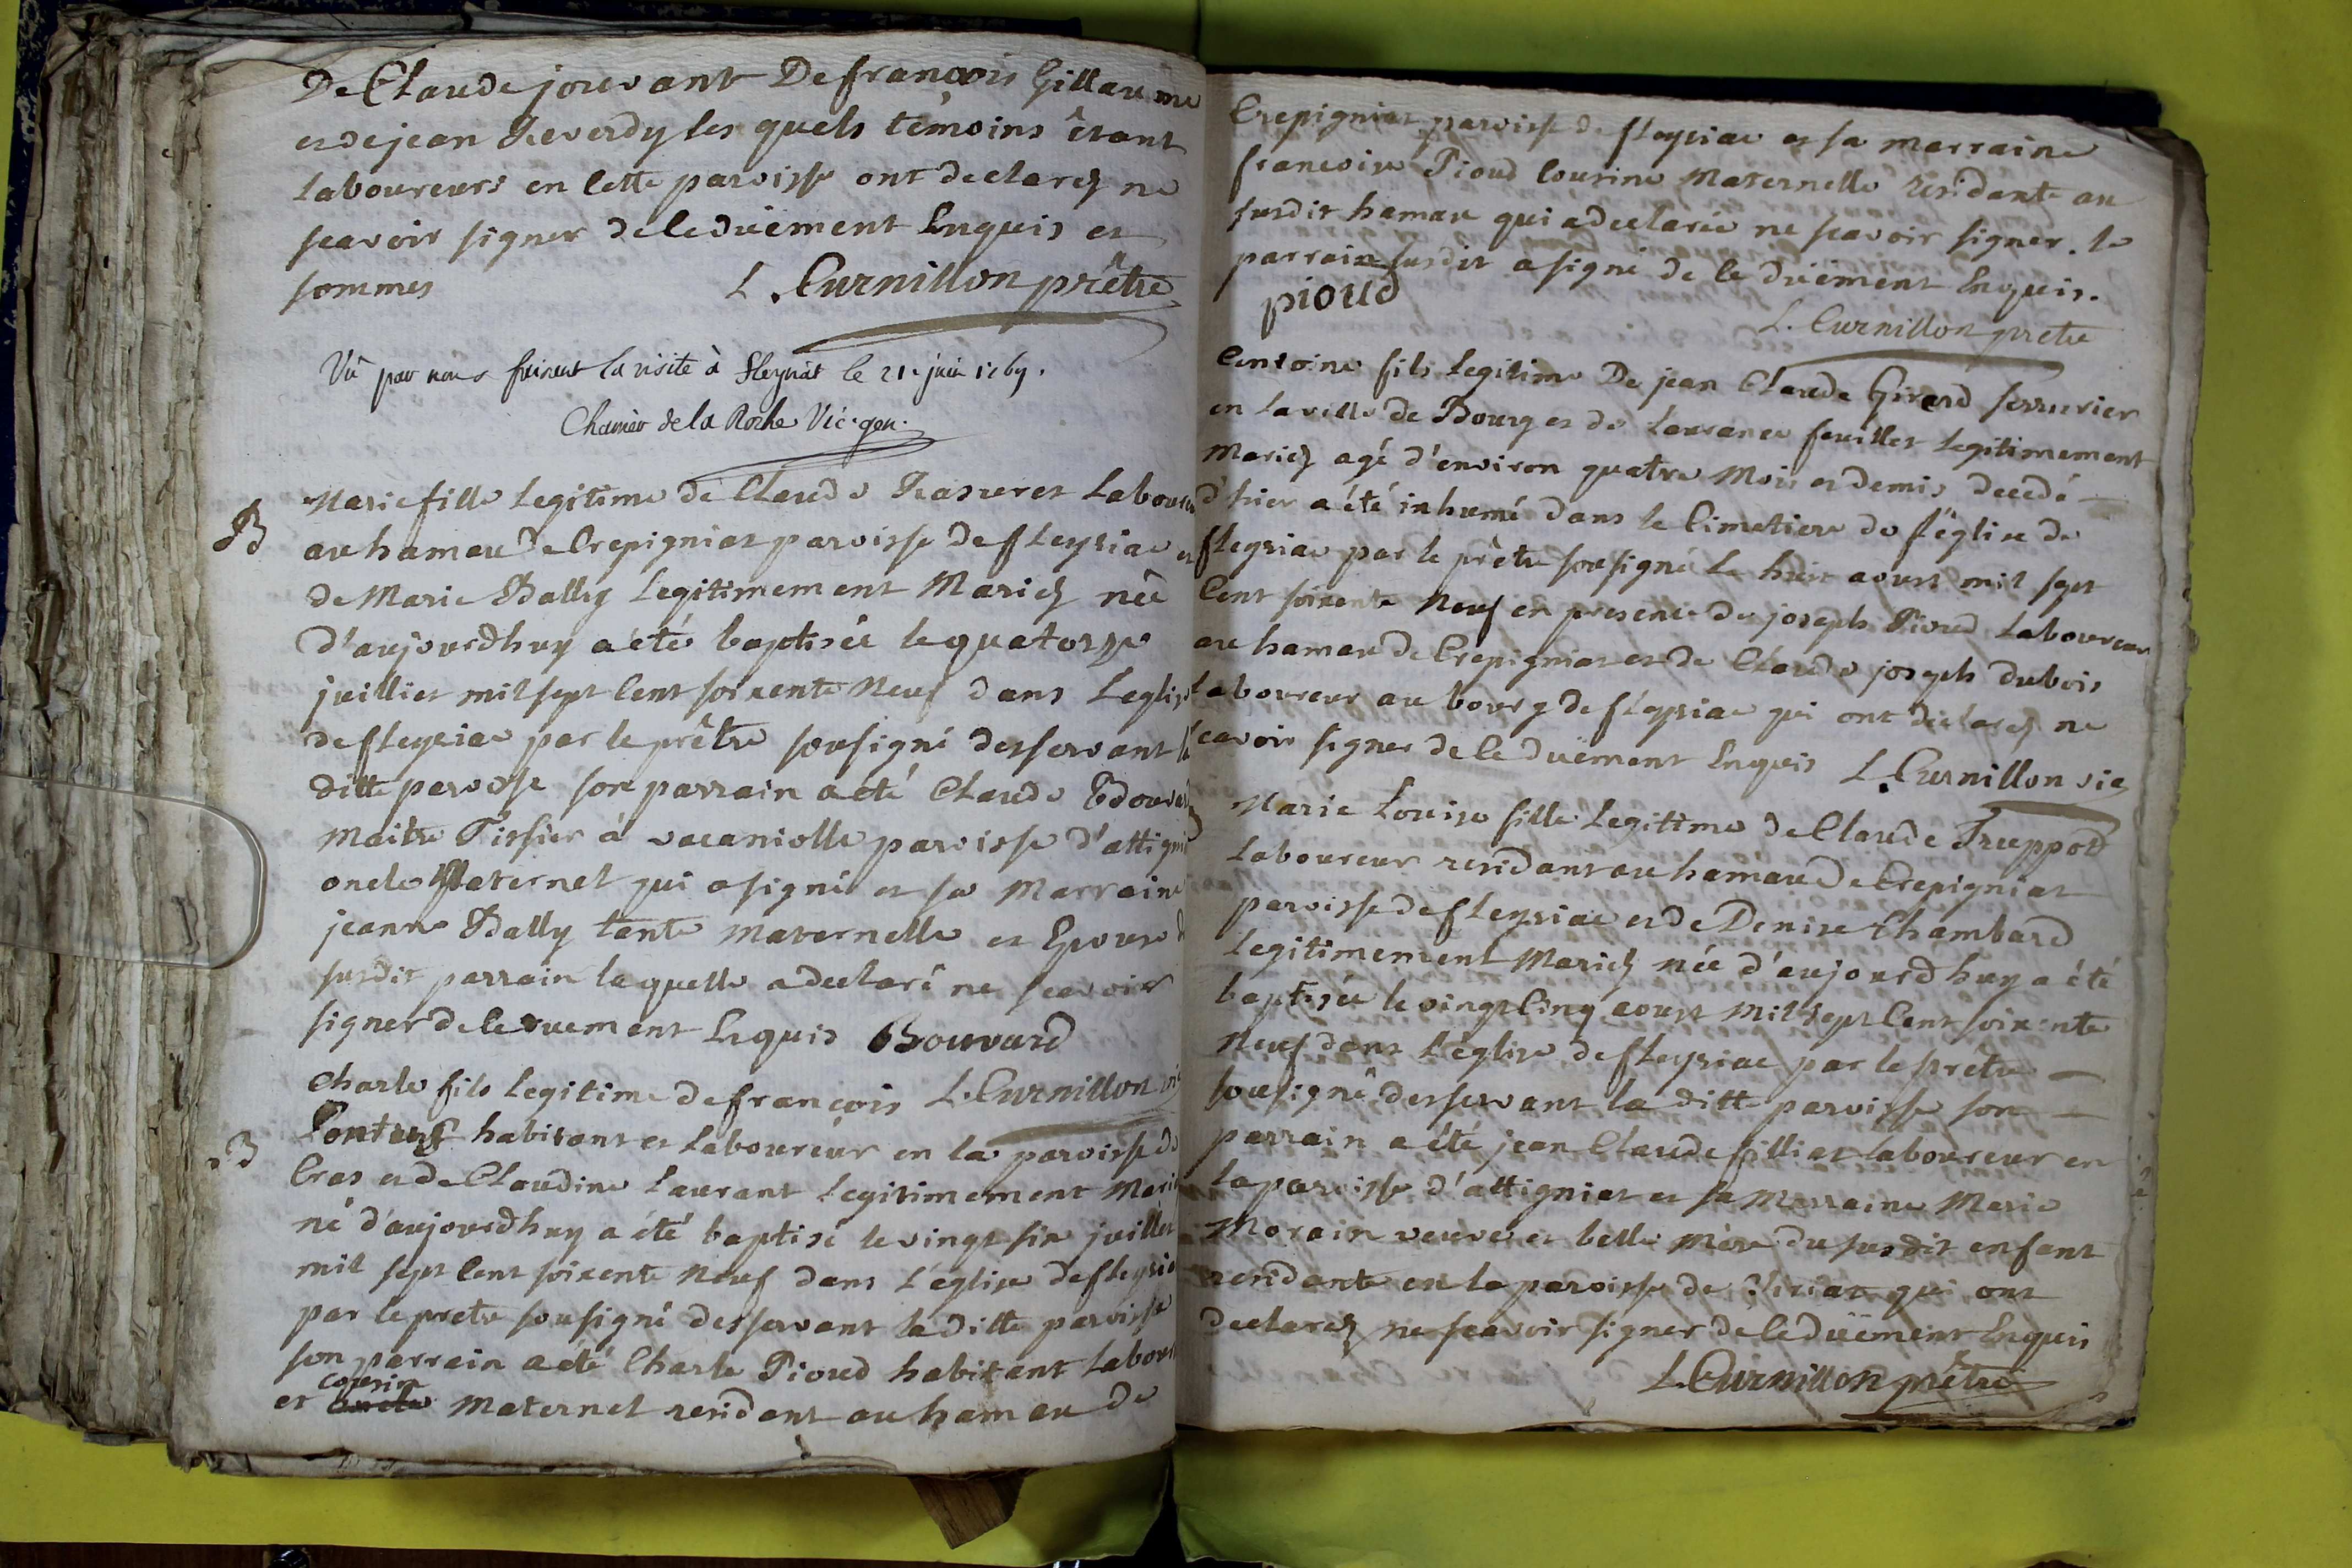 De Claude jouvant De francois Gillaume
et de jean Reverdy les quels têmoins êtant
laboureurs en cette paroisse ont declarez ne
scavoir signer de ce düement Enquis et
sommes L. Curnillon prêtre
Vû par nous faisant la visite à fleyriat le 21e juin 1769.
Charrier de la Roche Vic. gen.
Marie fille legitime de Claude Rasurer Labour
B
au hamau De Crepigniat paroisse De fleyriac et
de Marie Bally legitimement Mariez née
d'aujourdhuy a été baptisée le quatorze
juilliet mil sept Cent soixente Neuf dans L'eglis
de fleyriac par le prêtre sousigné desservant la
ditte paroisse son parrain a été Claude
Maitre Tissier à vacaniolle paroisse d'attigni
oncle Maternel qui a signé et sa Marraine
jeanne Bally tante Maternelle et Epouse d
susdit parrain laquelle a declaré ne scavoir
signer de ce duement Enquis Bouvard
Charle fils legitime De francois L. Curnillon vic
B
habitant et laboureur en la paroisse de
Cras et de Claudine laurant legitimement Mari
né d'aujourdhuy a été baptisé le vingt six juillet
mil sept Cent soixente Neuf dans L'église de fleyria
par le pretre sousigné desservant la ditte paroisse
son parrain a été Charle Pioud habitant labour
cousin
et oncle Maternel residant au hamau de
Crepigniat paroisse de fleyriac et sa marraine
francoise Pioud Cousine Maternelle residante au
susdit hamau qui a declarée ne scavoir signer. le
parrain susdit a signé de ce düement Enquis.
pioud
L. Curnillon pretre
Centoine fils legitime De jean Claude Girard serrurier
en la ville de Bourg et de laurance feuillet legitimement
Mariez agé d'environ quatre Mois et demis decedé
d'hier a été inhumé dans le Cimetiere de l'église de
fleyriac par le prêtre sousigné le huit aoust mil sept
Cent soixente Neuf en presence de joseph Pioud laboureur
au hamau de Crepigniat et de Claude joseph dubois
laboureur au bourg de fleyriac qui ont déclarez ne
scavoir signer de ce duement Enquis L. Curnillon vic
Marie Louise fille Legitime de Claude Truppod
laboureur residant au hamau De Crepigniat
paroisse de fleyriac et de Denise Chambard
legitimement Mariez née d'aujourdhuy a été
baptisée le vingt Cinq aoust Mil sept Cent soixente
Neuf dans L'église de fleyriac par le prêtre
sousigné desservant la ditte paroisse son
parrain a été jean Claude filliat laboureur en
la paroisse d'attigniat et sa Marraine Marie
Morain veuve et belle mère du susdit enfant
residante en la paroisse de Viriat qui ont
declarez ne scavoir signer de ce düement Enquis
L. Curnillon prêtre